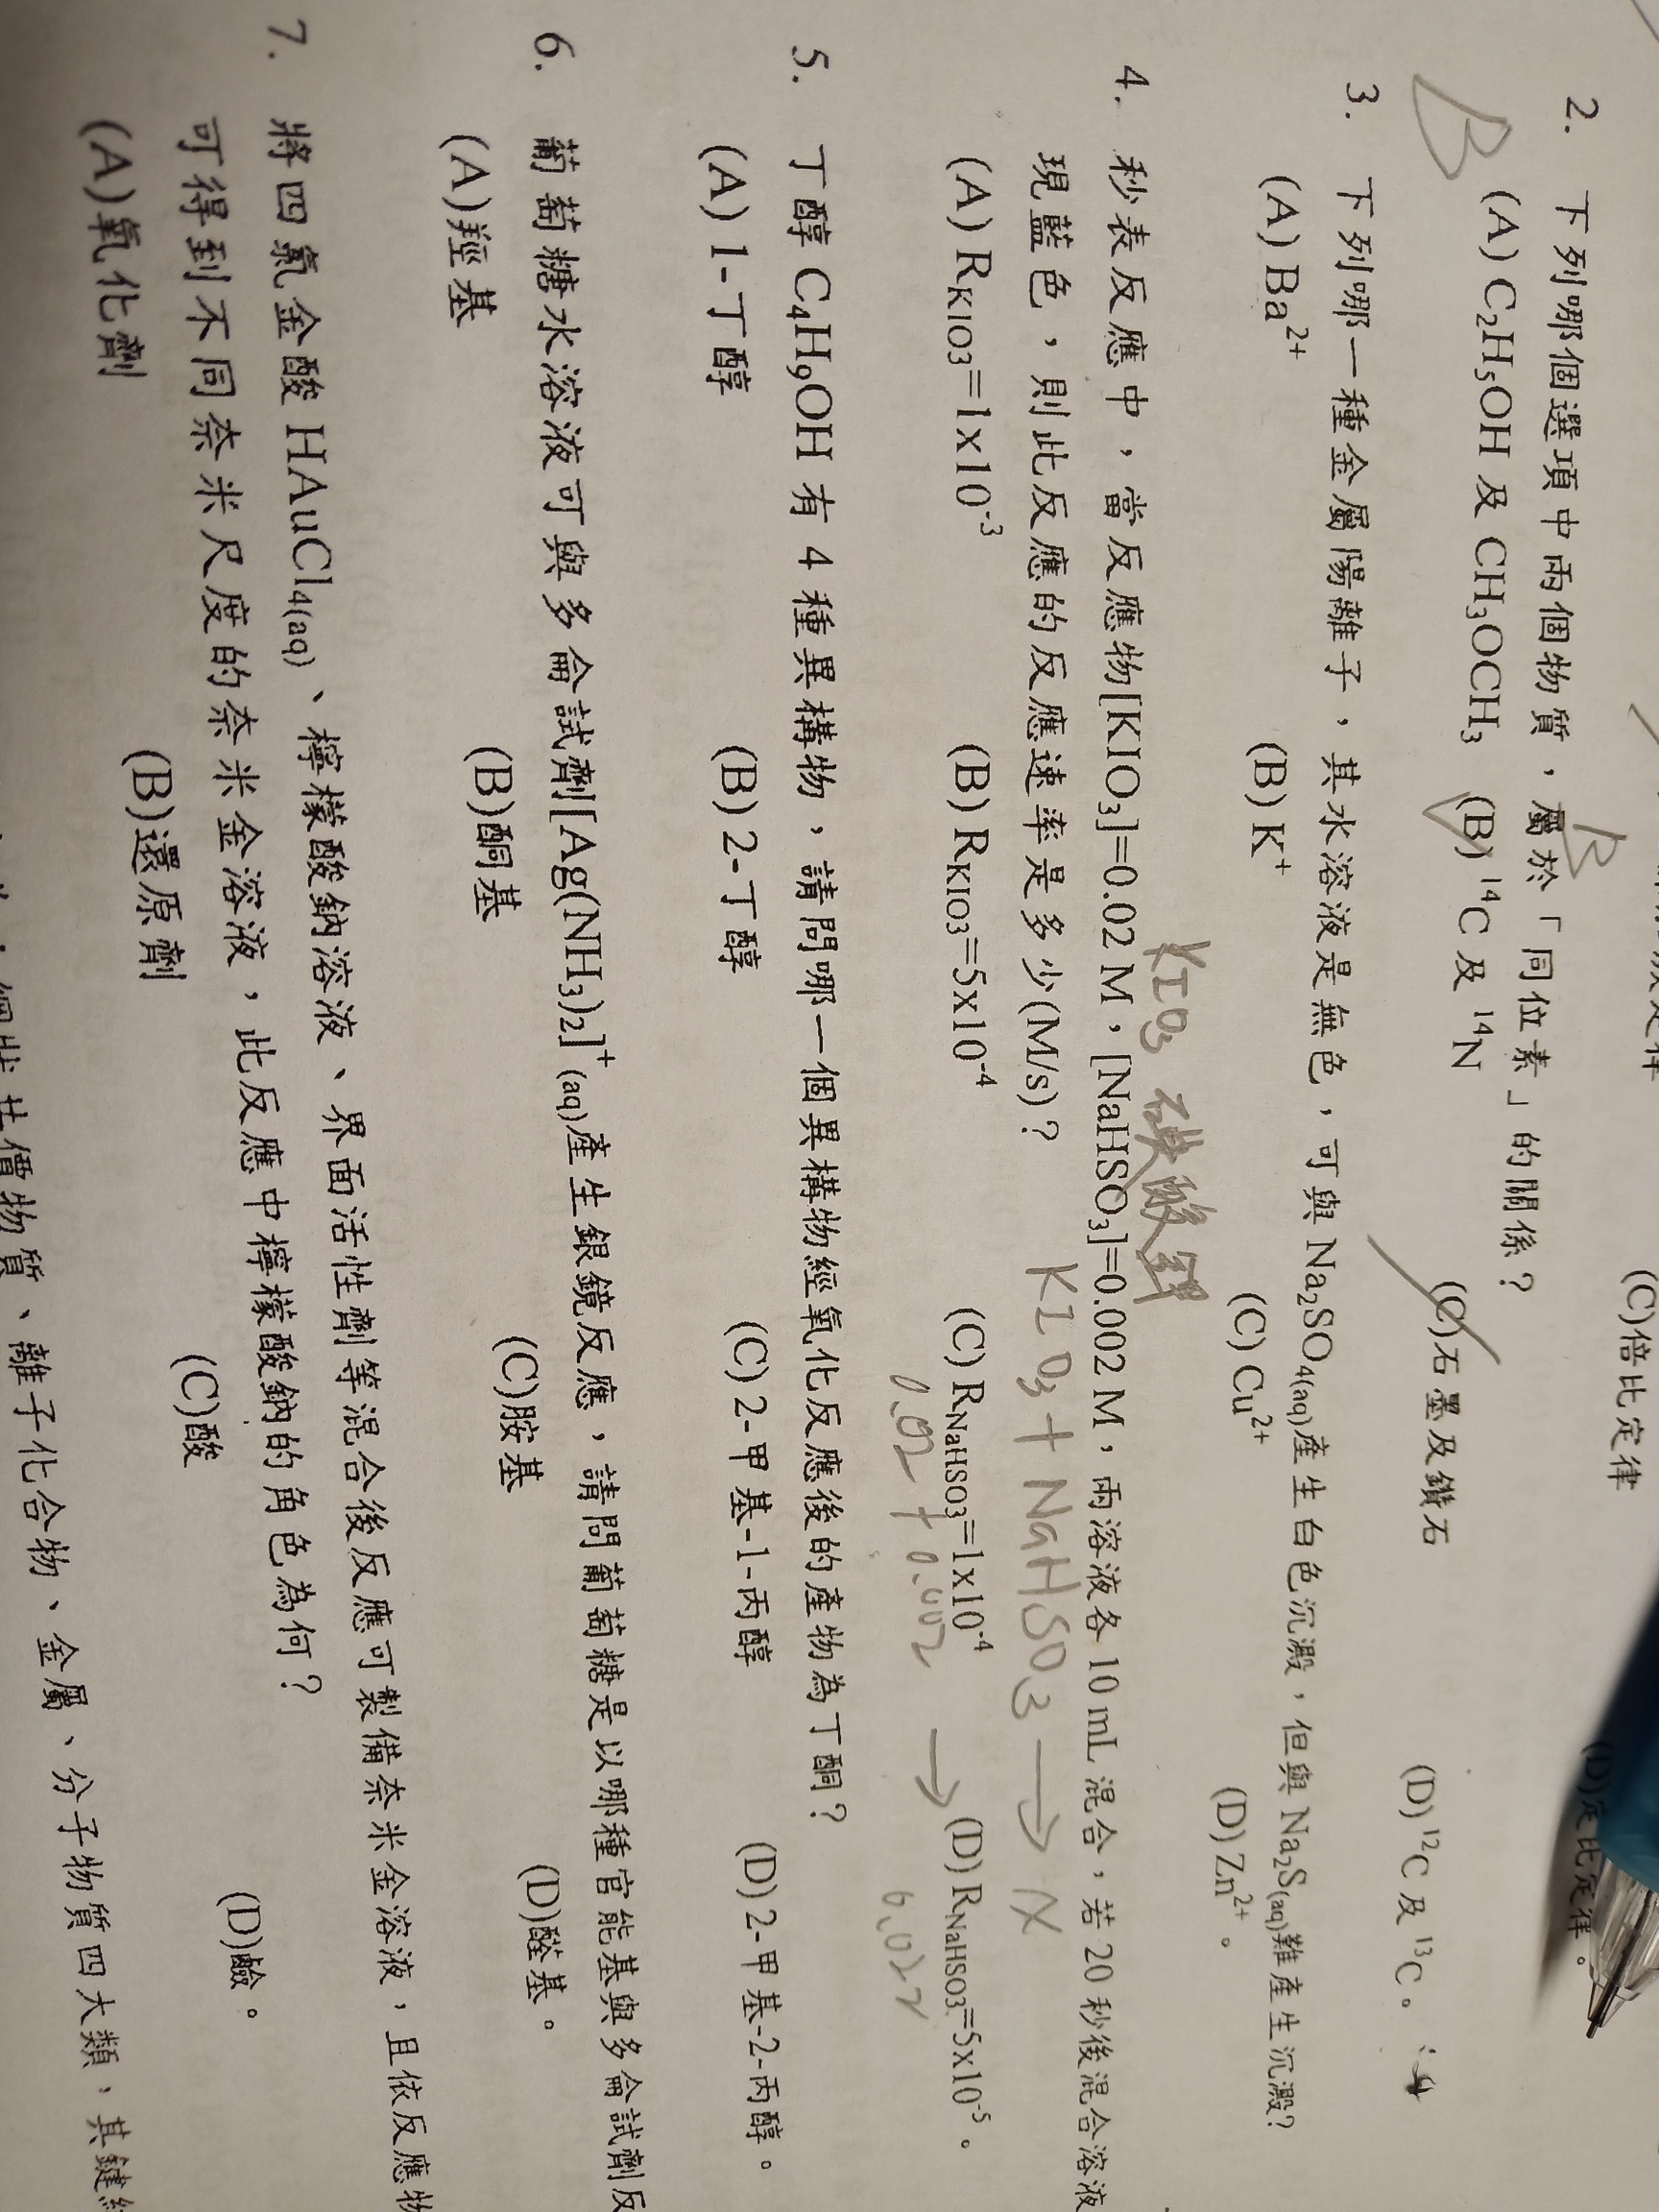 (C)倍比定律 (D)定比定律。
2. 下列哪個選項中兩個物質，屬於「同位素」的關係？
B
B
(A) C₂H₅OH 及 CH₃OCH₃ (B) ¹⁴C 及 ¹⁴N (C)石墨及鑽石 (D) ¹²C 及 ¹³C。
3. 下列哪一種金屬陽離子，其水溶液是無色，可與 Na₂SO₄(aq)產生白色沉澱，但與 Na₂S(aq)難產生沉澱?
(A) Ba²⁺ (B) K⁺ (C) Cu²⁺ (D) Zn²⁺。
KIO₃ 碘酸鉀
4. 秒表反應中，當反應物[KIO₃]=0.02 M，[NaHSO₃]=0.002 M，兩溶液各 10 mL 混合，若 20 秒後混合溶液
現藍色，則此反應的反應速率是多少(M/s)？
KIO₃ + NaHSO₃ →
(A) R_KIO3=1x10⁻³ (B) R_KIO3=5x10⁻⁴ (C) R_NaHSO3=1x10⁻⁴ (D) R_NaHSO3=5x10⁻⁵。
0.02 + 0.002 → 0.022
5. 丁醇 C₄H₉OH 有 4 種異構物，請問哪一個異構物經氧化反應後的產物為丁酮？
(A) 1-丁醇 (B) 2-丁醇 (C) 2-甲基-1-丙醇 (D) 2-甲基-2-丙醇。
6. 葡萄糖水溶液可與多侖試劑[Ag(NH₃)₂]⁺(aq)產生銀鏡反應，請問葡萄糖是以哪種官能基與多侖試劑反
(A)羥基 (B)酮基 (C)胺基 (D)醛基。
7. 將四氯金酸 HAuCl₄(aq)、檸檬酸鈉溶液、界面活性劑等混合後反應可製備奈米金溶液，且依反應物
可得到不同奈米尺度的奈米金溶液，此反應中檸檬酸鈉的角色為何？
(A)氧化劑 (B)還原劑 (C)酸 (D)鹼。
網狀共價物質、離子化合物、金屬、分子物質四大類，其鍵結